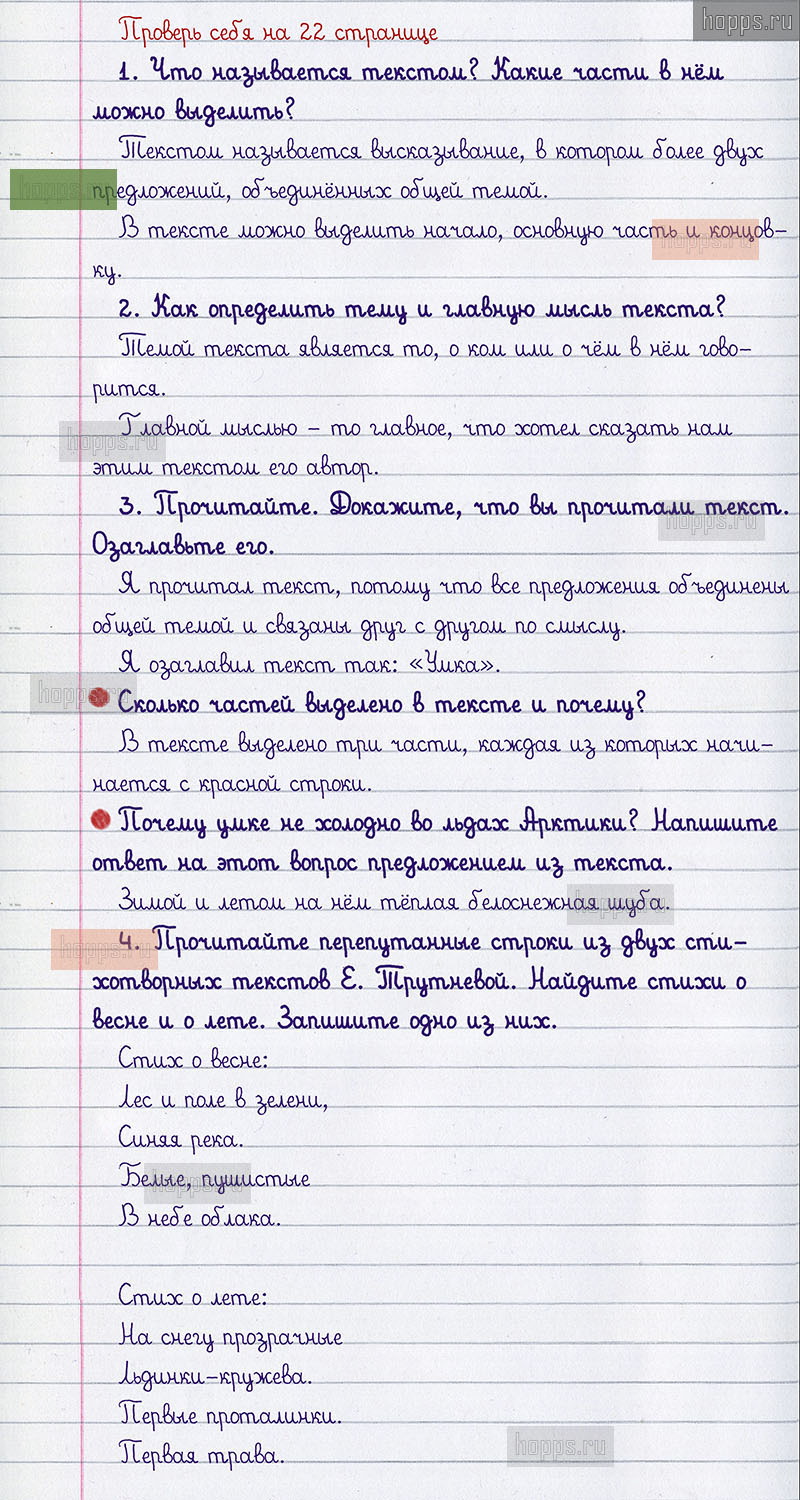 hopps.ru
Проверь себя на 22 странице
1. Что называется текстом? Какие части в нём
можно выделить?
Текстом называется высказывание, в котором более двух
hopps.ru
предложений, объединённых общей темой.
В тексте можно выделить начало, основную часть и концов-
hopps.ru
ку.
2. Как определить тему и главную мысль текста?
Темой текста является то, о ком или о чём в нём гово-
рится.
Главной мыслью – то главное, что хотел сказать нам
hopps.ru
этим текстом его автор.
3. Прочитайте. Докажите, что вы прочитали текст.
hopps.ru
Озаглавьте его.
Я прочитал текст, потому что все предложения объединены
общей темой и связаны друг с другом по смыслу.
Я озаглавил текст так: «Умка».
hopps.ru
Сколько частей выделено в тексте и почему?
В тексте выделено три части, каждая из которых начи-
нается с красной строки.
Почему умке не холодно во льдах Арктики? Напишите
ответ на этот вопрос предложением из текста.
Зимой и летом на нём тёплая белоснежная шуба.
hopps.ru
4. Прочитайте перепутанные строки из двух сти-
hopps.ru
хотворных текстов Е. Трутневой. Найдите стихи о
весне и о лете. Запишите одно из них.
Стих о весне:
Лес и поле в зелени,
Синяя река.
Белые, пушистые
hopps.ru
В небе облака.
Стих о лете:
На снегу прозрачные
Льдинки-кружева.
Первые проталинки.
hopps.ru
Первая трава.